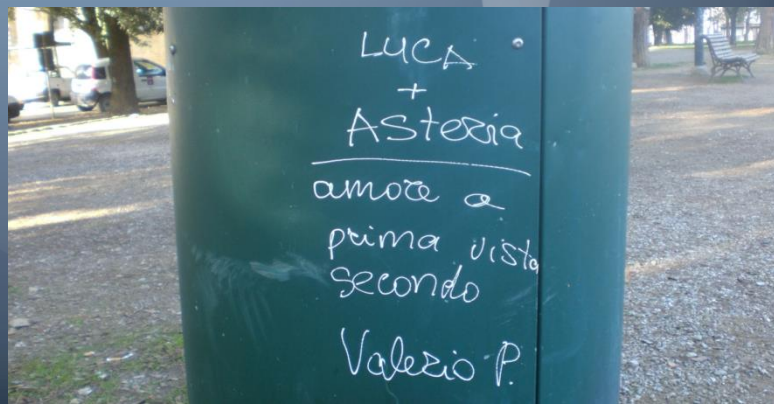 LUCA
+
ASteria
amore a
prima vista
secondo
Valerio P.